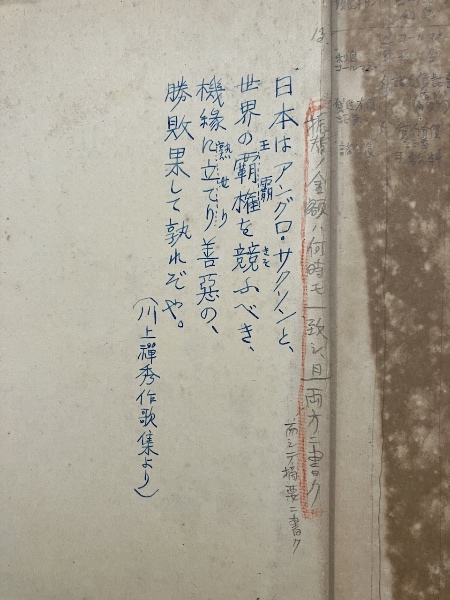 振替ノ金額ハ何時モ一致シ、且両方ニ書ク
而シテ摘要ニ書ク
日本はアングロ・サクソンと、
世界の覇権を競ふべき、
王覇
きそ
機縁に立てり善惡の、
熟せり
勝敗果して孰れぞや。
(川上禪秀作歌集より)